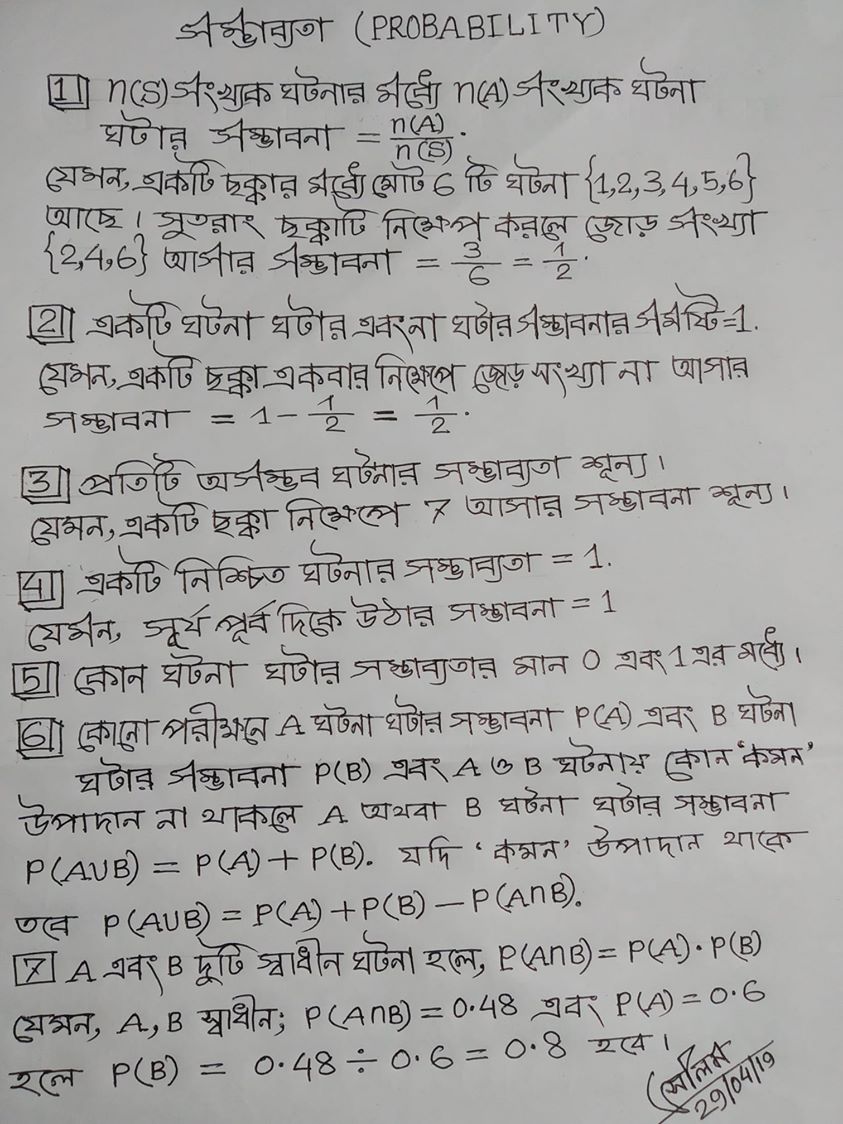 সম্ভাব্যতা (PROBABILITY)
1 n(S) সংখ্যক ঘটনার মধ্যে n(A) সংখ্যক ঘটনা
ঘটার সম্ভাবনা = n(A)/n(S).
যেমন, একটি ছক্কার মধ্যে মোট 6 টি ঘটনা {1,2,3,4,5,6}
আছে। সুতরাং ছক্কাটি নিক্ষেপ করলে জোড় সংখ্যা
{2,4,6} আসার সম্ভাবনা = 3/6 = 1/2.
2 একটি ঘটনা ঘটার এবং না ঘটার সম্ভাবনার সমষ্টি=1.
যেমন, একটি ছক্কা একবার নিক্ষেপে জোড় সংখ্যা না আসার
সম্ভাবনা = 1 - 1/2 = 1/2.
3 প্রতিটি অসম্ভব ঘটনার সম্ভাব্যতা শূন্য।
যেমন, একটি ছক্কা নিক্ষেপে 7 আসার সম্ভাবনা শূন্য।
4 একটি নিশ্চিত ঘটনার সম্ভাব্যতা = 1.
যেমন, সূর্য পূর্ব দিকে উঠার সম্ভাবনা = 1
5 কোন ঘটনা ঘটার সম্ভাব্যতার মান 0 এবং 1 এর মধ্যে।
6 কোনো পরীক্ষনে A ঘটনা ঘটার সম্ভাবনা P(A) এবং B ঘটনা
ঘটার সম্ভাবনা P(B) এবং A ও B ঘটনায় কোন ‘কমন’
উপাদান না থাকলে A অথবা B ঘটনা ঘটার সম্ভাবনা
P(A∪B) = P(A) + P(B). যদি ‘কমন’ উপাদান থাকে
তবে P(A∪B) = P(A) + P(B) - P(A∩B).
7 A এবং B দুটি স্বাধীন ঘটনা হলে, P(A∩B) = P(A)·P(B)
যেমন, A, B স্বাধীন; P(A∩B) = 0.48 এবং P(A) = 0.6
হলে P(B) = 0.48 ÷ 0.6 = 0.8 হবে।
সেলিম
29/04/19